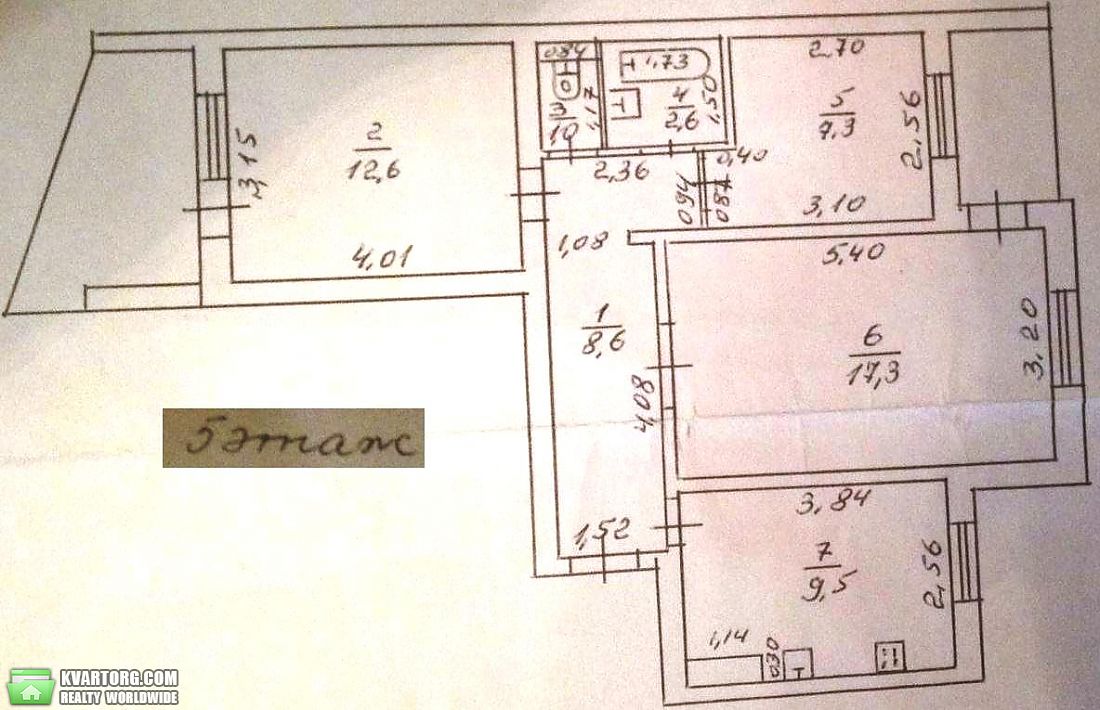 2
12,6
3,15
4,01
0,84
3
1,0
1,17
1,73
4
2,6
1,50
2,70
5
7,3
2,56
0,40
2,36
0,94
0,87
3,10
1,08
5,40
1
8,6
6
17,3
3,20
4,08
5этаж
1,52
3,84
7
9,5
2,56
1,14
0,30
KVARTORG.COM
REALTY WORLDWIDE